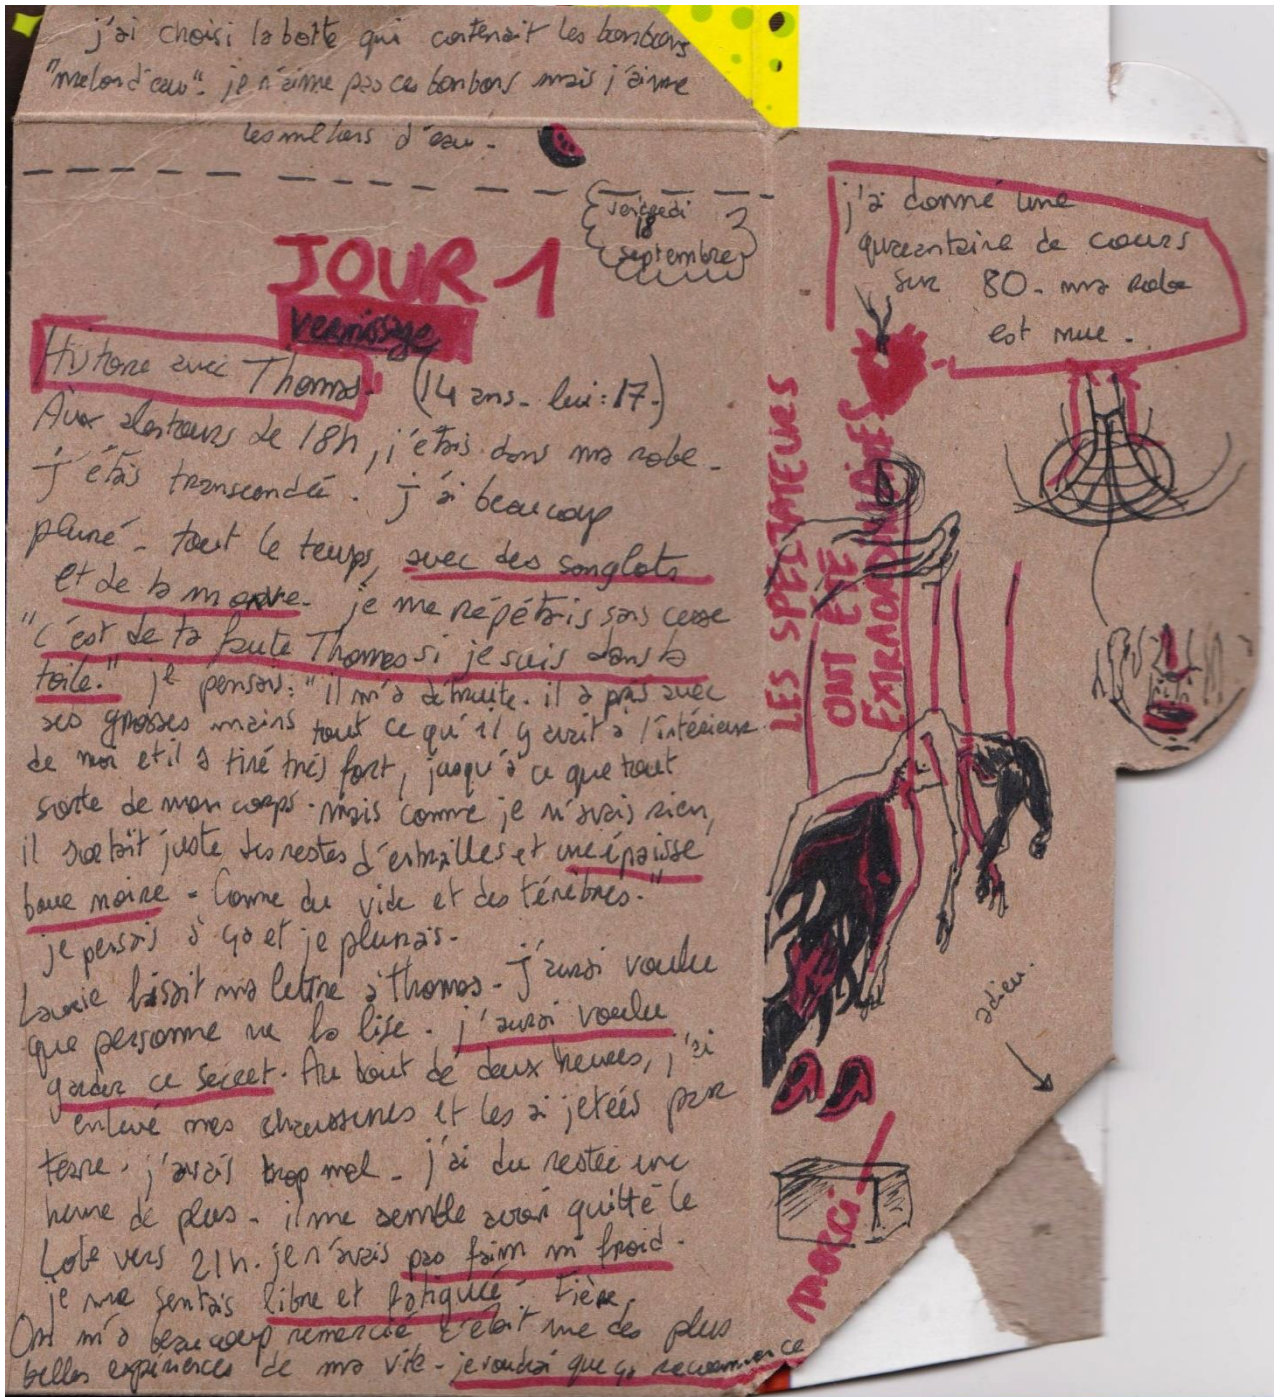 j'ai choisi la boîte qui contenait les bonbons
"melon d'eau". je n'aime pas ces bonbons mais j'aime
les melons d'eau.
vendredi
18
septembre
JOUR 1
vernissage
Histoire avec Thomas. (14 ans. lui : 17.)
Aux alentours de 18h, j'étais dans ma robe.
j'étais transcendée. j'ai beaucoup
pleuré. tout le temps, avec des sanglots
et de la morve. je me répétais sans cesse
"c'est de ta faute Thomas si je suis dans la
toile." je pensais : "il m'a détruite. il a pris avec
ses grosses mains tout ce qu'il y avait à l'intérieur
de moi et il a tiré très fort, jusqu'à ce que tout
sorte de mon corps. mais comme je n'avais rien,
il sortait juste des restes d'entrailles et une épaisse
boue noire. Comme du vide et des ténèbres."
je pensais à ça et je pleurais.
Laurie lisait ma lettre à Thomas. j'aurai voulu
que personne ne la lise. j'aurai voulu
garder ce secret. Au bout de deux heures, j'ai
enlevé mes chaussures et les ai jetées par
terre. j'avais trop mal. j'ai du rester une
heure de plus. il me semble avoir quitté le
Lobe vers 21h. je n'avais pas faim ni froid.
je me sentais libre et fatiguée. Fière.
On m'a beaucoup remercié c'était une des plus
belles expériences de ma vie. je voudrai que ça recommence
j'ai donné une
quarantaine de cœurs
sur 80. ma robe
est nue.
LES SPECTATEURS
ONT ÉTÉ
EXTRAORDINAIRES
adieu.
merci